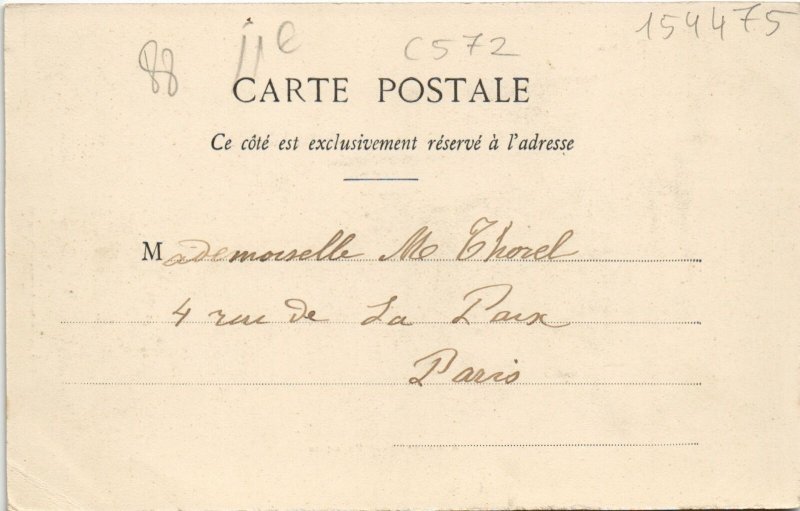 154475
88 11e C572
CARTE POSTALE
Ce côté est exclusivement réservé à l'adresse
Mademoiselle M Thorel
4 rue de La Paix
Paris